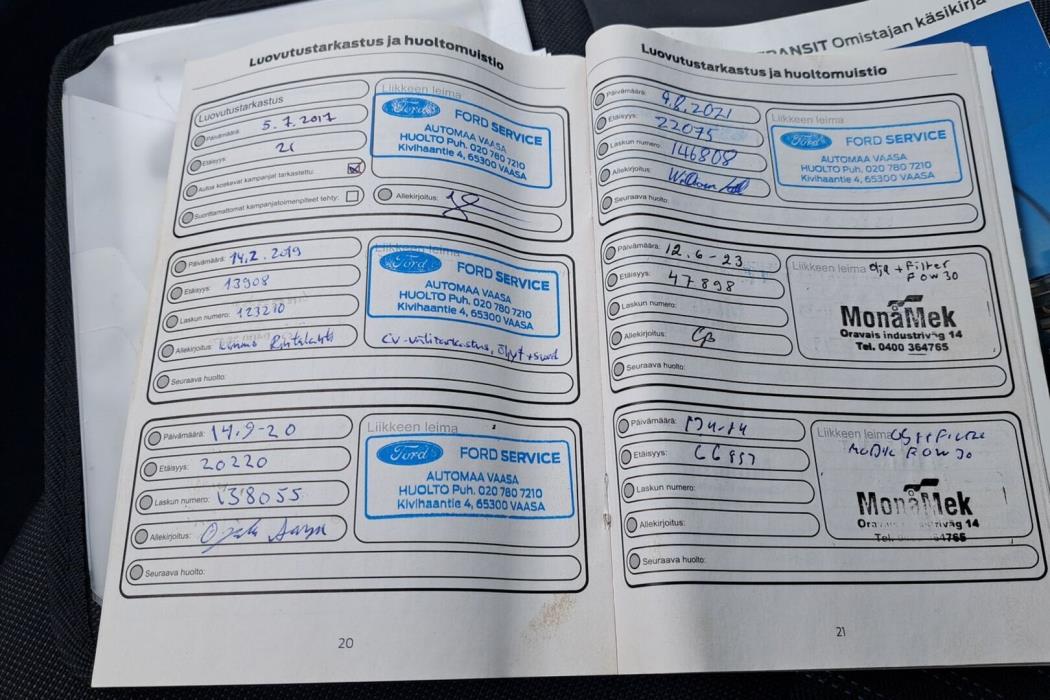 TRANSIT Omistajan käsikirja
Luovutustarkastus ja huoltomuistio
Luovutustarkastus
Päivämäärä: 5.7.2017
Etäisyys: 21
Autoa koskevat kampanjat tarkastettu:
Suorittamattomat kampanjatoimenpiteet tehty:
Liikkeen leima
Ford FORD SERVICE
AUTOMAA VAASA
HUOLTO Puh. 020 780 7210
Kivihaantie 4, 65300 VAASA
Allekirjoitus:
Päivämäärä: 14.2.2019
Etäisyys: 13908
Laskun numero: 123210
Allekirjoitus:
Seuraava huolto:
Liikkeen leima
Ford FORD SERVICE
AUTOMAA VAASA
HUOLTO Puh. 020 780 7210
Kivihaantie 4, 65300 VAASA
CV-välitarkastus, öljyt+suod
Päivämäärä: 14.9-20
Etäisyys: 20220
Laskun numero: 138055
Allekirjoitus:
Seuraava huolto:
Liikkeen leima
Ford FORD SERVICE
AUTOMAA VAASA
HUOLTO Puh. 020 780 7210
Kivihaantie 4, 65300 VAASA
20
Luovutustarkastus ja huoltomuistio
Päivämäärä: 9.8.2021
Etäisyys: 22075
Laskun numero: 146808
Allekirjoitus:
Seuraava huolto:
Liikkeen leima
Ford FORD SERVICE
AUTOMAA VAASA
HUOLTO Puh. 020 780 7210
Kivihaantie 4, 65300 VAASA
Päivämäärä: 12.6-23
Etäisyys: 47898
Laskun numero:
Allekirjoitus:
Seuraava huolto:
Liikkeen leima olja + Filter
MonåMek
Oravais industriväg 14
Tel. 0400 364765
Päivämäärä:
Etäisyys:
Laskun numero:
Allekirjoitus:
Seuraava huolto:
Liikkeen leima
MonåMek